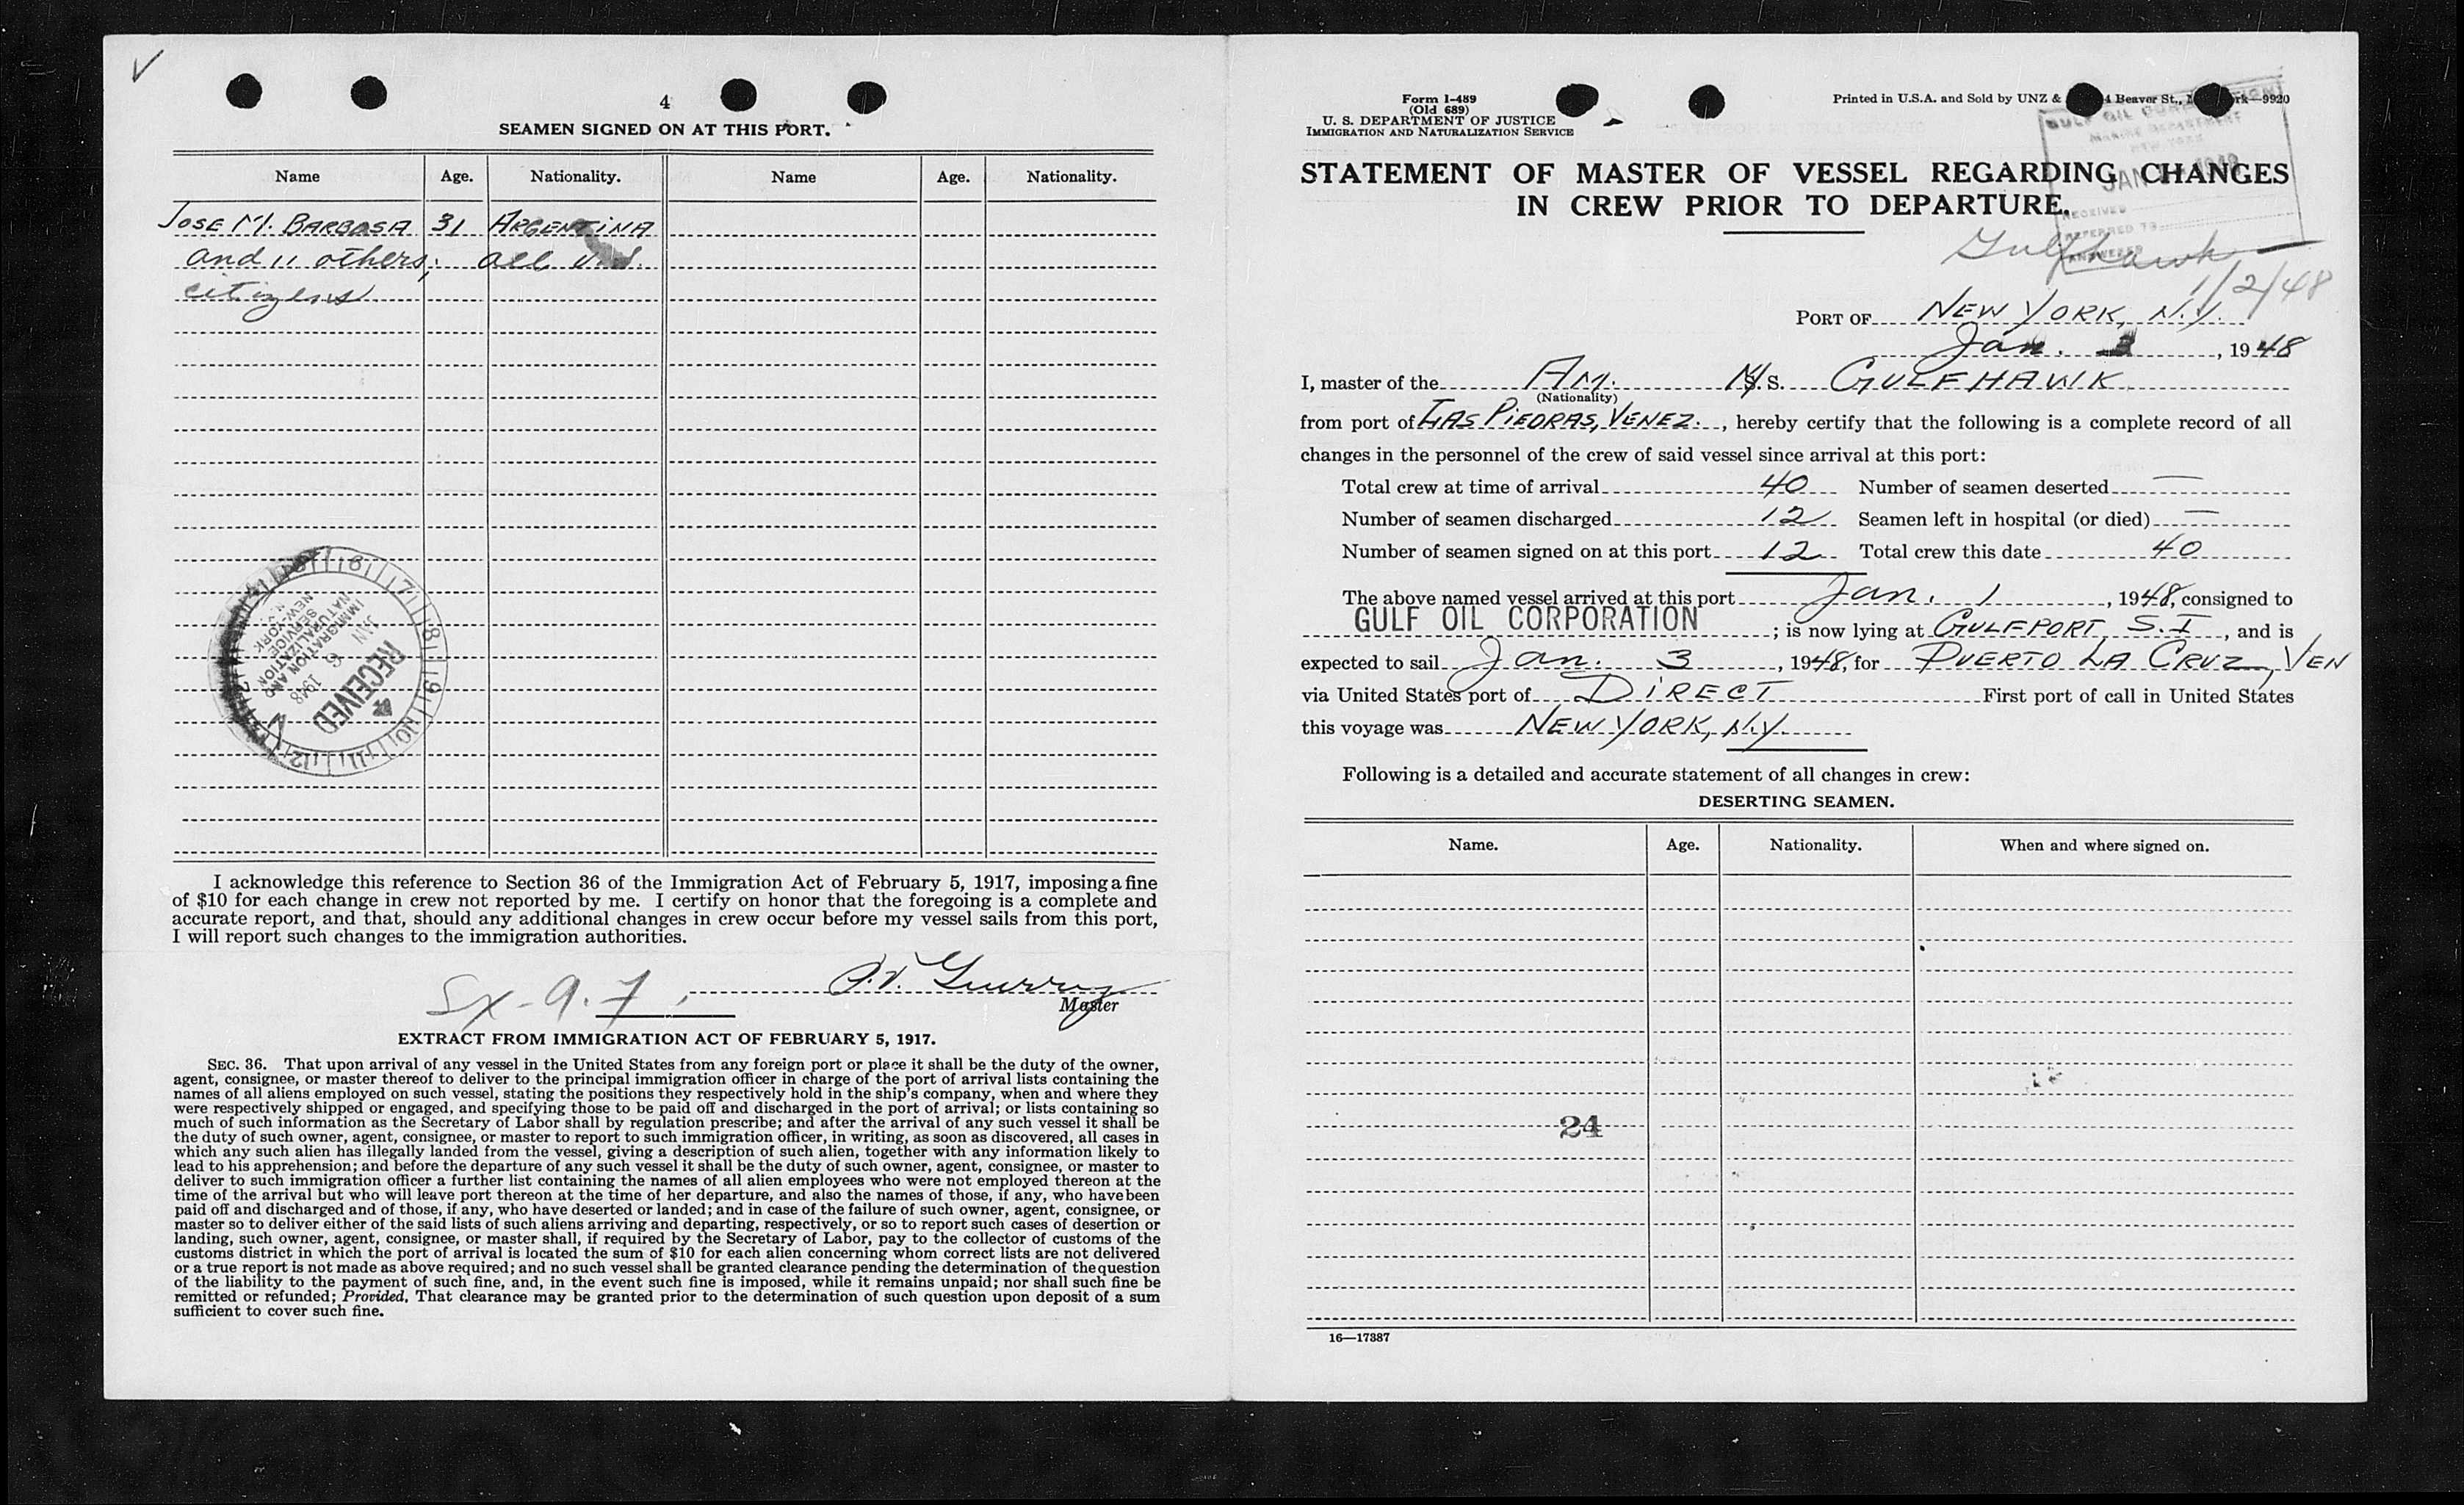 4
SEAMEN SIGNED ON AT THIS PORT.
Name Age. Nationality. Name Age. Nationality.
JOSE M. BARBOSA 31 ARGENTINA
and 11 others; all U.S.
citizens
RECEIVED
JAN 6 1948
IMMIGRATION AND
NATURALIZATION
SERVICE
NEW-YORK
I acknowledge this reference to Section 36 of the Immigration Act of February 5, 1917, imposing a fine
of $10 for each change in crew not reported by me. I certify on honor that the foregoing is a complete and
accurate report, and that, should any additional changes in crew occur before my vessel sails from this port,
I will report such changes to the immigration authorities.
Sx-9.7
Master
EXTRACT FROM IMMIGRATION ACT OF FEBRUARY 5, 1917.
SEC. 36. That upon arrival of any vessel in the United States from any foreign port or place it shall be the duty of the owner,
agent, consignee, or master thereof to deliver to the principal immigration officer in charge of the port of arrival lists containing the
names of all aliens employed on such vessel, stating the positions they respectively hold in the ship's company, when and where they
were respectively shipped or engaged, and specifying those to be paid off and discharged in the port of arrival; or lists containing so
much of such information as the Secretary of Labor shall by regulation prescribe; and after the arrival of any such vessel it shall be
the duty of such owner, agent, consignee, or master to report to such immigration officer, in writing, as soon as discovered, all cases in
which any such alien has illegally landed from the vessel, giving a description of such alien, together with any information likely to
lead to his apprehension; and before the departure of any such vessel it shall be the duty of such owner, agent, consignee, or master to
deliver to such immigration officer a further list containing the names of all alien employees who were not employed thereon at the
time of the arrival but who will leave port thereon at the time of her departure, and also the names of those, if any, who have been
paid off and discharged and of those, if any, who have deserted or landed; and in case of the failure of such owner, agent, consignee, or
master so to deliver either of the said lists of such aliens arriving and departing, respectively, or so to report such cases of desertion or
landing, such owner, agent, consignee, or master shall, if required by the Secretary of Labor, pay to the collector of customs of the
customs district in which the port of arrival is located the sum of $10 for each alien concerning whom correct lists are not delivered
or a true report is not made as above required; and no such vessel shall be granted clearance pending the determination of the question
of the liability to the payment of such fine, and, in the event such fine is imposed, while it remains unpaid; nor shall such fine be
remitted or refunded; Provided, That clearance may be granted prior to the determination of such question upon deposit of a sum
sufficient to cover such fine.
Form I-489
(Old 689)
U. S. DEPARTMENT OF JUSTICE
IMMIGRATION AND NATURALIZATION SERVICE
Printed in U.S.A. and Sold by UNZ & Beaver St., 9920
GULF OIL CORPORATION
MARINE DEPARTMENT
NEW YORK
JAN 1948
RECEIVED
REFERRED TO
ANSWERED
STATEMENT OF MASTER OF VESSEL REGARDING CHANGES
IN CREW PRIOR TO DEPARTURE.
Gulfhawk
1/2/48
PORT OF NEW YORK, N.Y.
Jan. , 1948
I, master of the AM. M.S. GULFHAWK
(Nationality)
from port of LAS PIEDRAS, VENEZ., hereby certify that the following is a complete record of all
changes in the personnel of the crew of said vessel since arrival at this port:
Total crew at time of arrival 40 Number of seamen deserted —
Number of seamen discharged 12 Seamen left in hospital (or died) —
Number of seamen signed on at this port 12 Total crew this date 40
The above named vessel arrived at this port Jan. 1, 1948, consigned to
GULF OIL CORPORATION; is now lying at GULFPORT, S.I, and is
expected to sail Jan. 3, 1948, for PUERTO LA CRUZ, VEN
via United States port of DIRECT First port of call in United States
this voyage was NEW YORK, N.Y.
Following is a detailed and accurate statement of all changes in crew:
DESERTING SEAMEN.
Name. Age. Nationality. When and where signed on.
24
16—17387